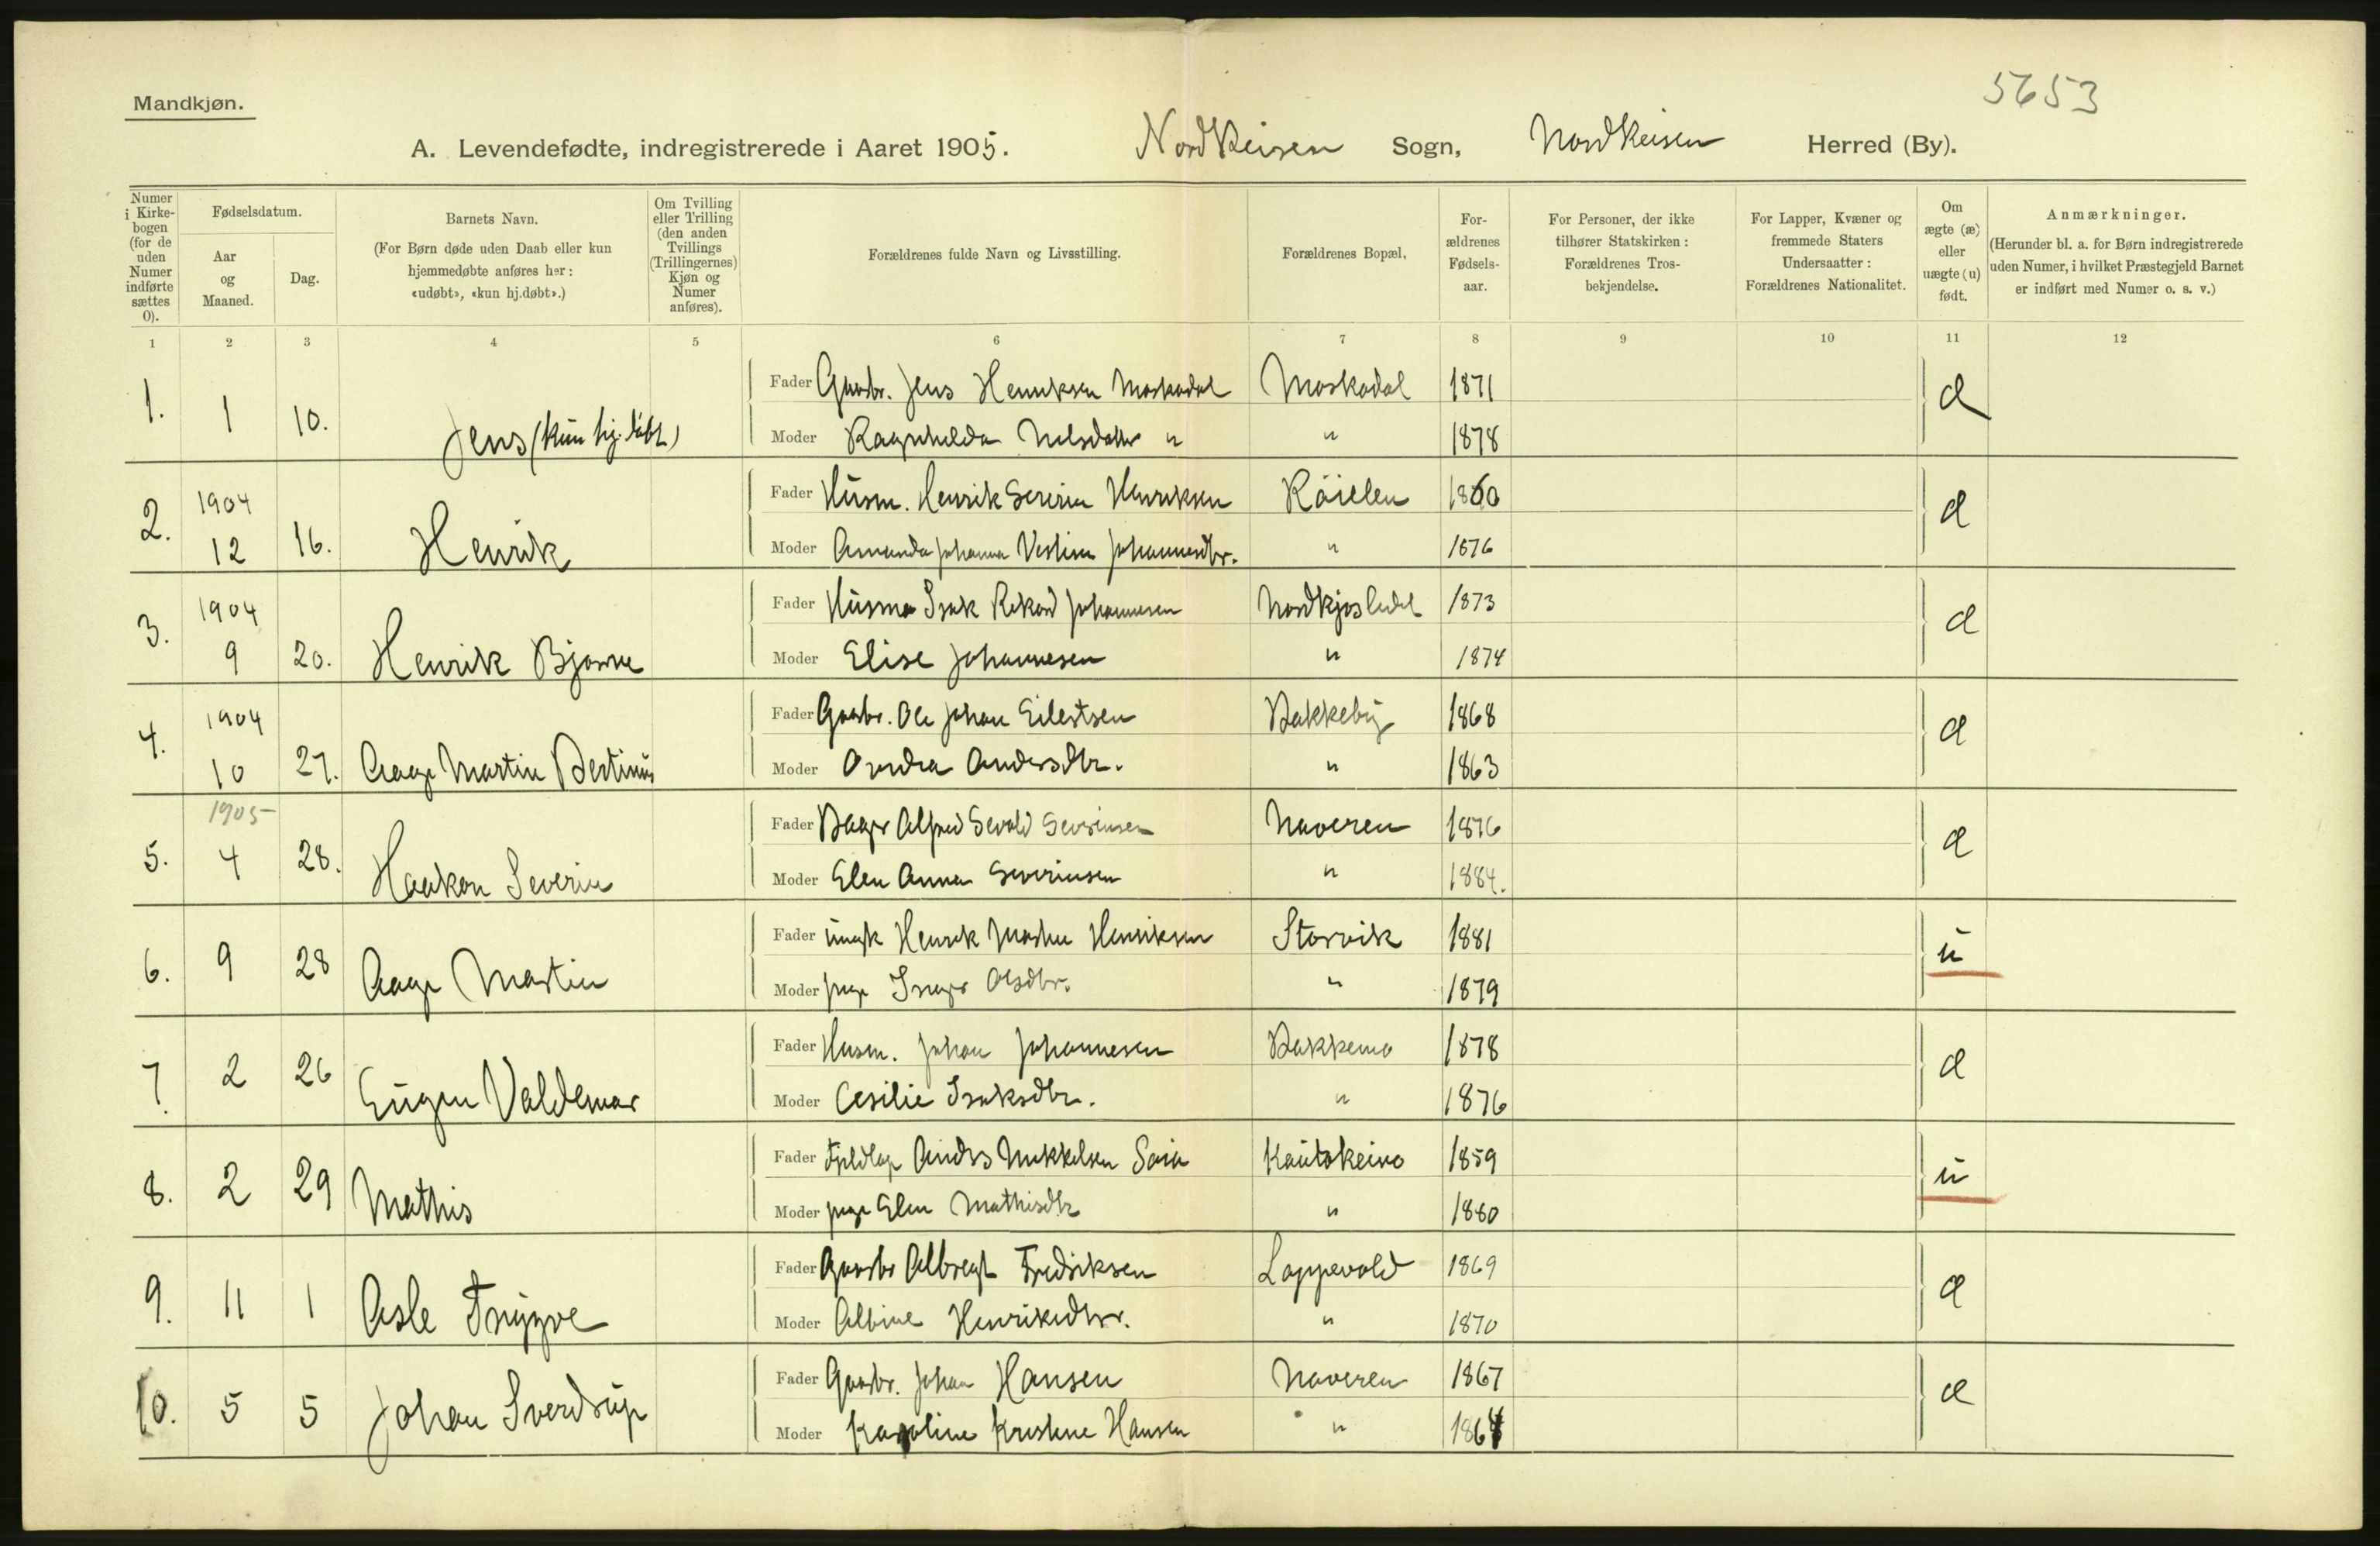 5653
Mandkjøn.
A. Levendefødte, indregistrerede i Aaret 1905. Nordreisen Sogn, Nordreisen Herred (By).
Numer i Kirkebogen (for de uden Numer indførte sættes 0).
Fødselsdatum.
Aar og Maaned.
Dag.
Barnets Navn.
(For Børn døde uden Daab eller kun hjemmedøbte anføres her: «udøbt», «kun hj.døbt».)
Om Tvilling eller Trilling (den anden Tvillings (Trillingernes) Kjøn og Numer anføres).
Forældrenes fulde Navn og Livsstilling.
Forældrenes Bopæl.
Forældrenes Fødselsaar.
For Personer, der ikke tilhører Statskirken: Forældrenes Trosbekjendelse.
For Lapper, Kvæner og fremmede Staters Undersaatter: Forældrenes Nationalitet.
Om ægte (æ) eller uægte (u) født.
Anmærkninger.
(Herunder bl. a. for Børn indregistrerede uden Numer, i hvilket Præstegjeld Barnet er indført med Numer o. s. v.)
1 2 3 4 5 6 7 8 9 10 11 12
1. 1 10. Jens (kun hj. døbt) Fader Gaarbr. Jens Henriksen Moskodal Moskodal 1871 æ
Moder Ragnhilda Nilsdatter " " 1878
2. 1904 12 16. Henrik Fader Husm. Henrik Severin Henriksen 1860 æ
Moder Amanda Johanna Johannesdtr. " 1876
3. 1904 9 20. Henrik Bjarne Fader Husma Isak Rikard Johannesen 1873 æ
Moder Elise Johannesen " 1874
4. 1904 10 27. Aage Martin Bertinus Fader Gaarbr. Ole Johan Eilertsen Bakkeby 1868 æ
Moder Andersdtr. " 1863
5. 1905 4 28. Haakon Severin Fader Alfred Sevald Severinsen Naveren 1876 æ
Moder Elen Anna Severinsen " 1884.
6. 9 28 Aage Martin Fader ungk Henrik Martin Henriksen Storvik 1881 u
Moder pige Inger Olsdtr. " 1879
7. 2 26 Eugen Valdemar Fader Husm. Johan Johannesen Bakkemo 1878 æ
Moder Cesilie Isaksdtr. " 1876
8. 2 29 Mathis Fader Fjeldlap Anders Mikkelsen Kautokeino 1859 u
Moder pige Elen Mathisdtr " 1880
9. 11 1 Asle Trygve Fader Gaarbr Albregt Fredriksen Loppevold 1869 æ
Moder Albine Henriksdtr. " 1870
10. 5 5 Johan Sverdrup Fader Gaarbr. Johan Hansen Naveren 1867 æ
Moder Karoline Kristine Hansen " 1864